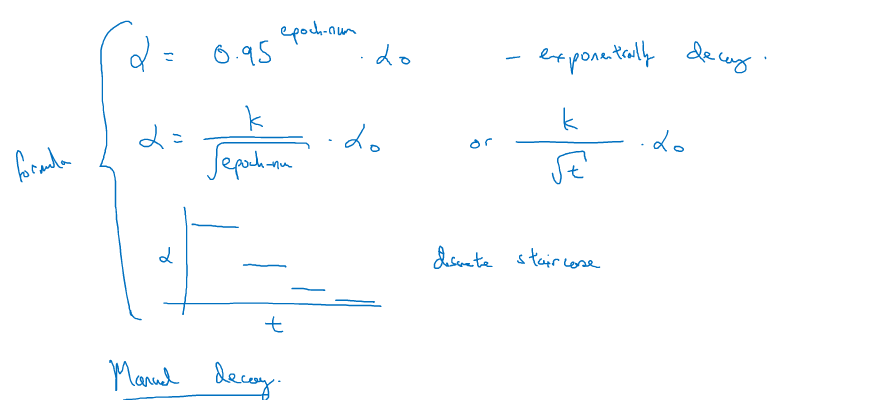 α = 0.95^epoch-num · α₀ – exponentially decay.
formula
α = k/√epoch-num · α₀ or k/√t · α₀
α
discrete staircase
t
Manual decay.